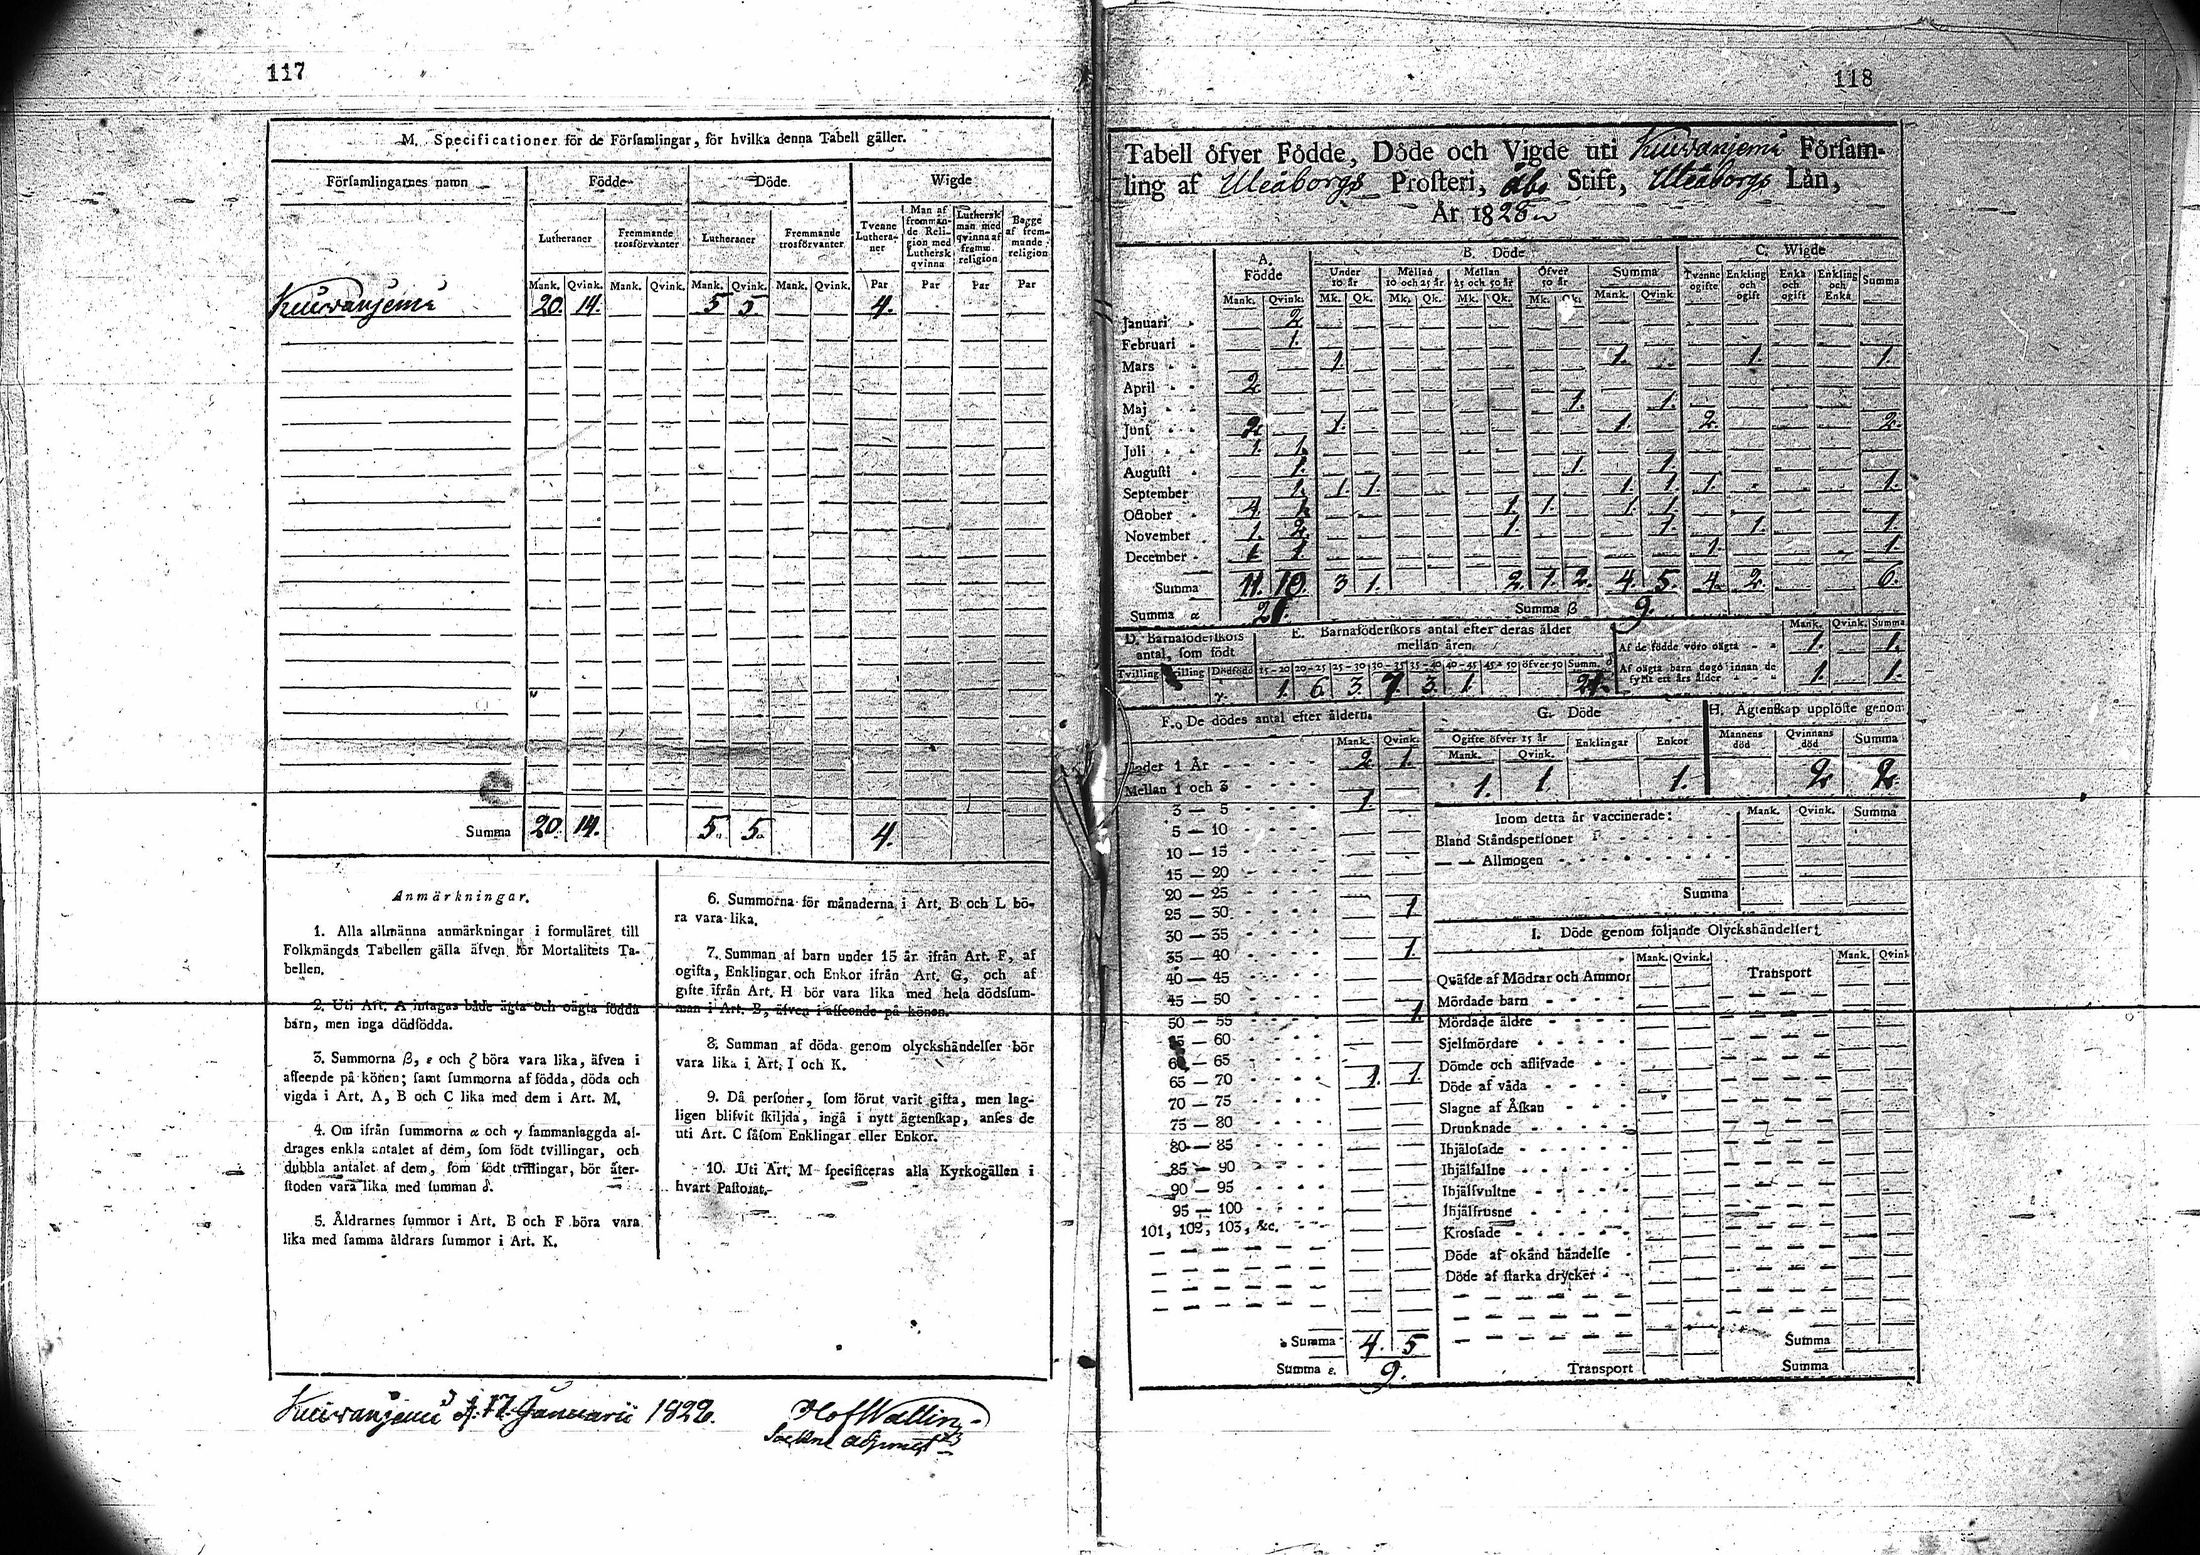 117
M. Specificationer för de Församlingar, för hvilka denna Tabell gäller.
Församlingarnes namn
Födde
Döde
Wigde
Lutheraner
Fremmande trosförvanter
Lutheraner
Fremmande trosförvanter
Tvenne Lutheraner
Man af frommände Religion med Luthersk qvinna
Luthersk man med qvinna af fremm. religion
Begge af fremmande religion
Mank. Qvink. Mank. Qvink. Mank. Qvink. Mank. Qvink. Par Par Par Par
Kuivaniemi 20. 14. 5 5. 4.
Summa 20. 14. 5. 5. 4.
Anmärkningar.
1. Alla allmänna anmärkningar i formuläret till
Folkmängds Tabellen gälla äfven för Mortalitets Ta-
bellen.
2. Uti Art. A intagas både ägta och oägta födda
barn, men inga dödfödda.
3. Summorna β, ε och ζ böra vara lika, äfven i
afseende på könen; samt summorna af födda, döda och
vigda i Art. A, B och C lika med dem i Art. M.
4. Om ifrån summorna α och γ sammanlaggda af-
drages enkla antalet af dem, som födt tvillingar, och
dubbla antalet af dem, som födt trillingar, bör åter-
stoden vara lika med summan δ.
5. Åldrarnes summor i Art. B och F böra vara
lika med samma åldrars summor i Art. K.
6. Summorna för månaderna i Art. B och L bö-
ra vara lika.
7. Summan af barn under 15 år ifrån Art. F, af
ogifta, Enklingar och Enkor ifrån Art. G, och af
gifte ifrån Art. H bör vara lika med hela dödssum-
man i Art. B, äfven i afseende på könen.
8. Summan af döda genom olyckshändelser bör
vara lika i Art. I och K.
9. Då personer, som förut varit gifta, men lag-
ligen blifvit skiljda, ingå i nytt ägtenskap, anses de
uti Art. C såsom Enklingar eller Enkor.
10. Uti Art. M specificeras alla Kyrkogällen i
hvart Pastorat.
Januarii
118
Tabell öfver Födde, Döde och Vigde uti Kuivaniemi Försam-
ling af Uleåborgs Prosteri, Åbo Stift, Uleåborgs Län,
År 1828
A. Födde
B. Döde
C. Wigde
Under 10 år
Mellan 10 och 25 år
Mellan 25 och 50 år
Öfver 50 år
Summa
Tvenne ogifte
Enkling och ogift
Enka och ogift
Enkling och Enka
Summa
Mank. Qvink. Mk. Qk. Mk. Qk. Mk. Qk. Mk. Qk. Mank. Qvink
Januari 2.
Februari 1.
Mars 1. 1. 1. 1.
April 2
Maj 1. 1.
Juni 2. 1. 1. 2. 2.
Juli 1. 1.
Augusti 1. 1. 1.
September 1. 1. 1. 1. 1. 1. 1.
October 4 1. 1. 1. 1. 1.
November 1. 2. 1. 1. 1. 1.
December 1 1. 1. 1.
Summa 11. 10. 3 1. 2. 1. 2. 4. 5. 4. 2. 6.
Summa α 21. Summa β 9.
D. Barnaföderskors antal, som födt
E. Barnaföderskors antal efter deras ålder mellan åren
Mank. Qvink. Summa
Af de födde voro oägta 1. 1.
Af oägta barn dogo innan de fyllt ett års ålder 1. 1.
Tvilling Dödfödd 15–20 20–25 25–30 30–35 35–40 40–45 45–50 öfver 50 Summ. δ
γ. 1. 6. 3. 7. 3. 1. 21.
F. De dödes antal efter åldern.
Mank. Qvink.
Under 1 År 2. 1.
Mellan 1 och 3
3 — 5 1.
5 — 10
10 — 15
15 — 20
20 — 25
25 — 30 1
30 — 35
35 — 40 1.
40 — 45
45 — 50
50 — 55 1.
— 60
— 65
65 — 70 1. 1.
70 — 75
75 — 80
80 — 85
85 — 90
90 — 95
95 — 100
101, 102, 103, &c.
Summa 4. 5.
Summa ε. 9.
G. Döde
Ogifte öfver 15 år
Enklingar
Enkor
Mank. Qvink.
1. 1. 1.
H. Ägtenskap upplöste genom
Mannens död
Qvinnans död
Summa
2. 2.
Inom detta år vaccinerade:
Mank. Qvink. Summa
Bland Ståndspersoner
— — Allmogen
Summa
I. Döde genom följande Olyckshändelser:
Mank. Qvink. Transport Mank. Qvink
Qväfde af Mödrar och Ammor
Mördade barn
Mördade äldre
Sjelfmördare
Dömde och aflifvade
Döde af våda
Slagne af Åskan
Drunknade
Ihjälosade
Ihjälfallne
Ihjälsvultne
Ihjälfrusne
Krossade
Döde af okänd händelse
Döde af starka drycker
Summa
Transport Summa